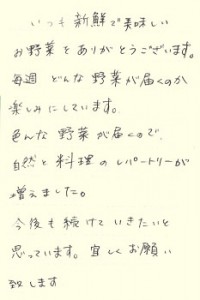 いつも新鮮で美味しい
お野菜をありがとうございます。
毎週 どんな野菜が届くのか
楽しみにしています。
色んな野菜が届くので、
自然と料理のレパートリーが
増えました。
今後も続けていきたいと
思っています。宜しくお願い
致します